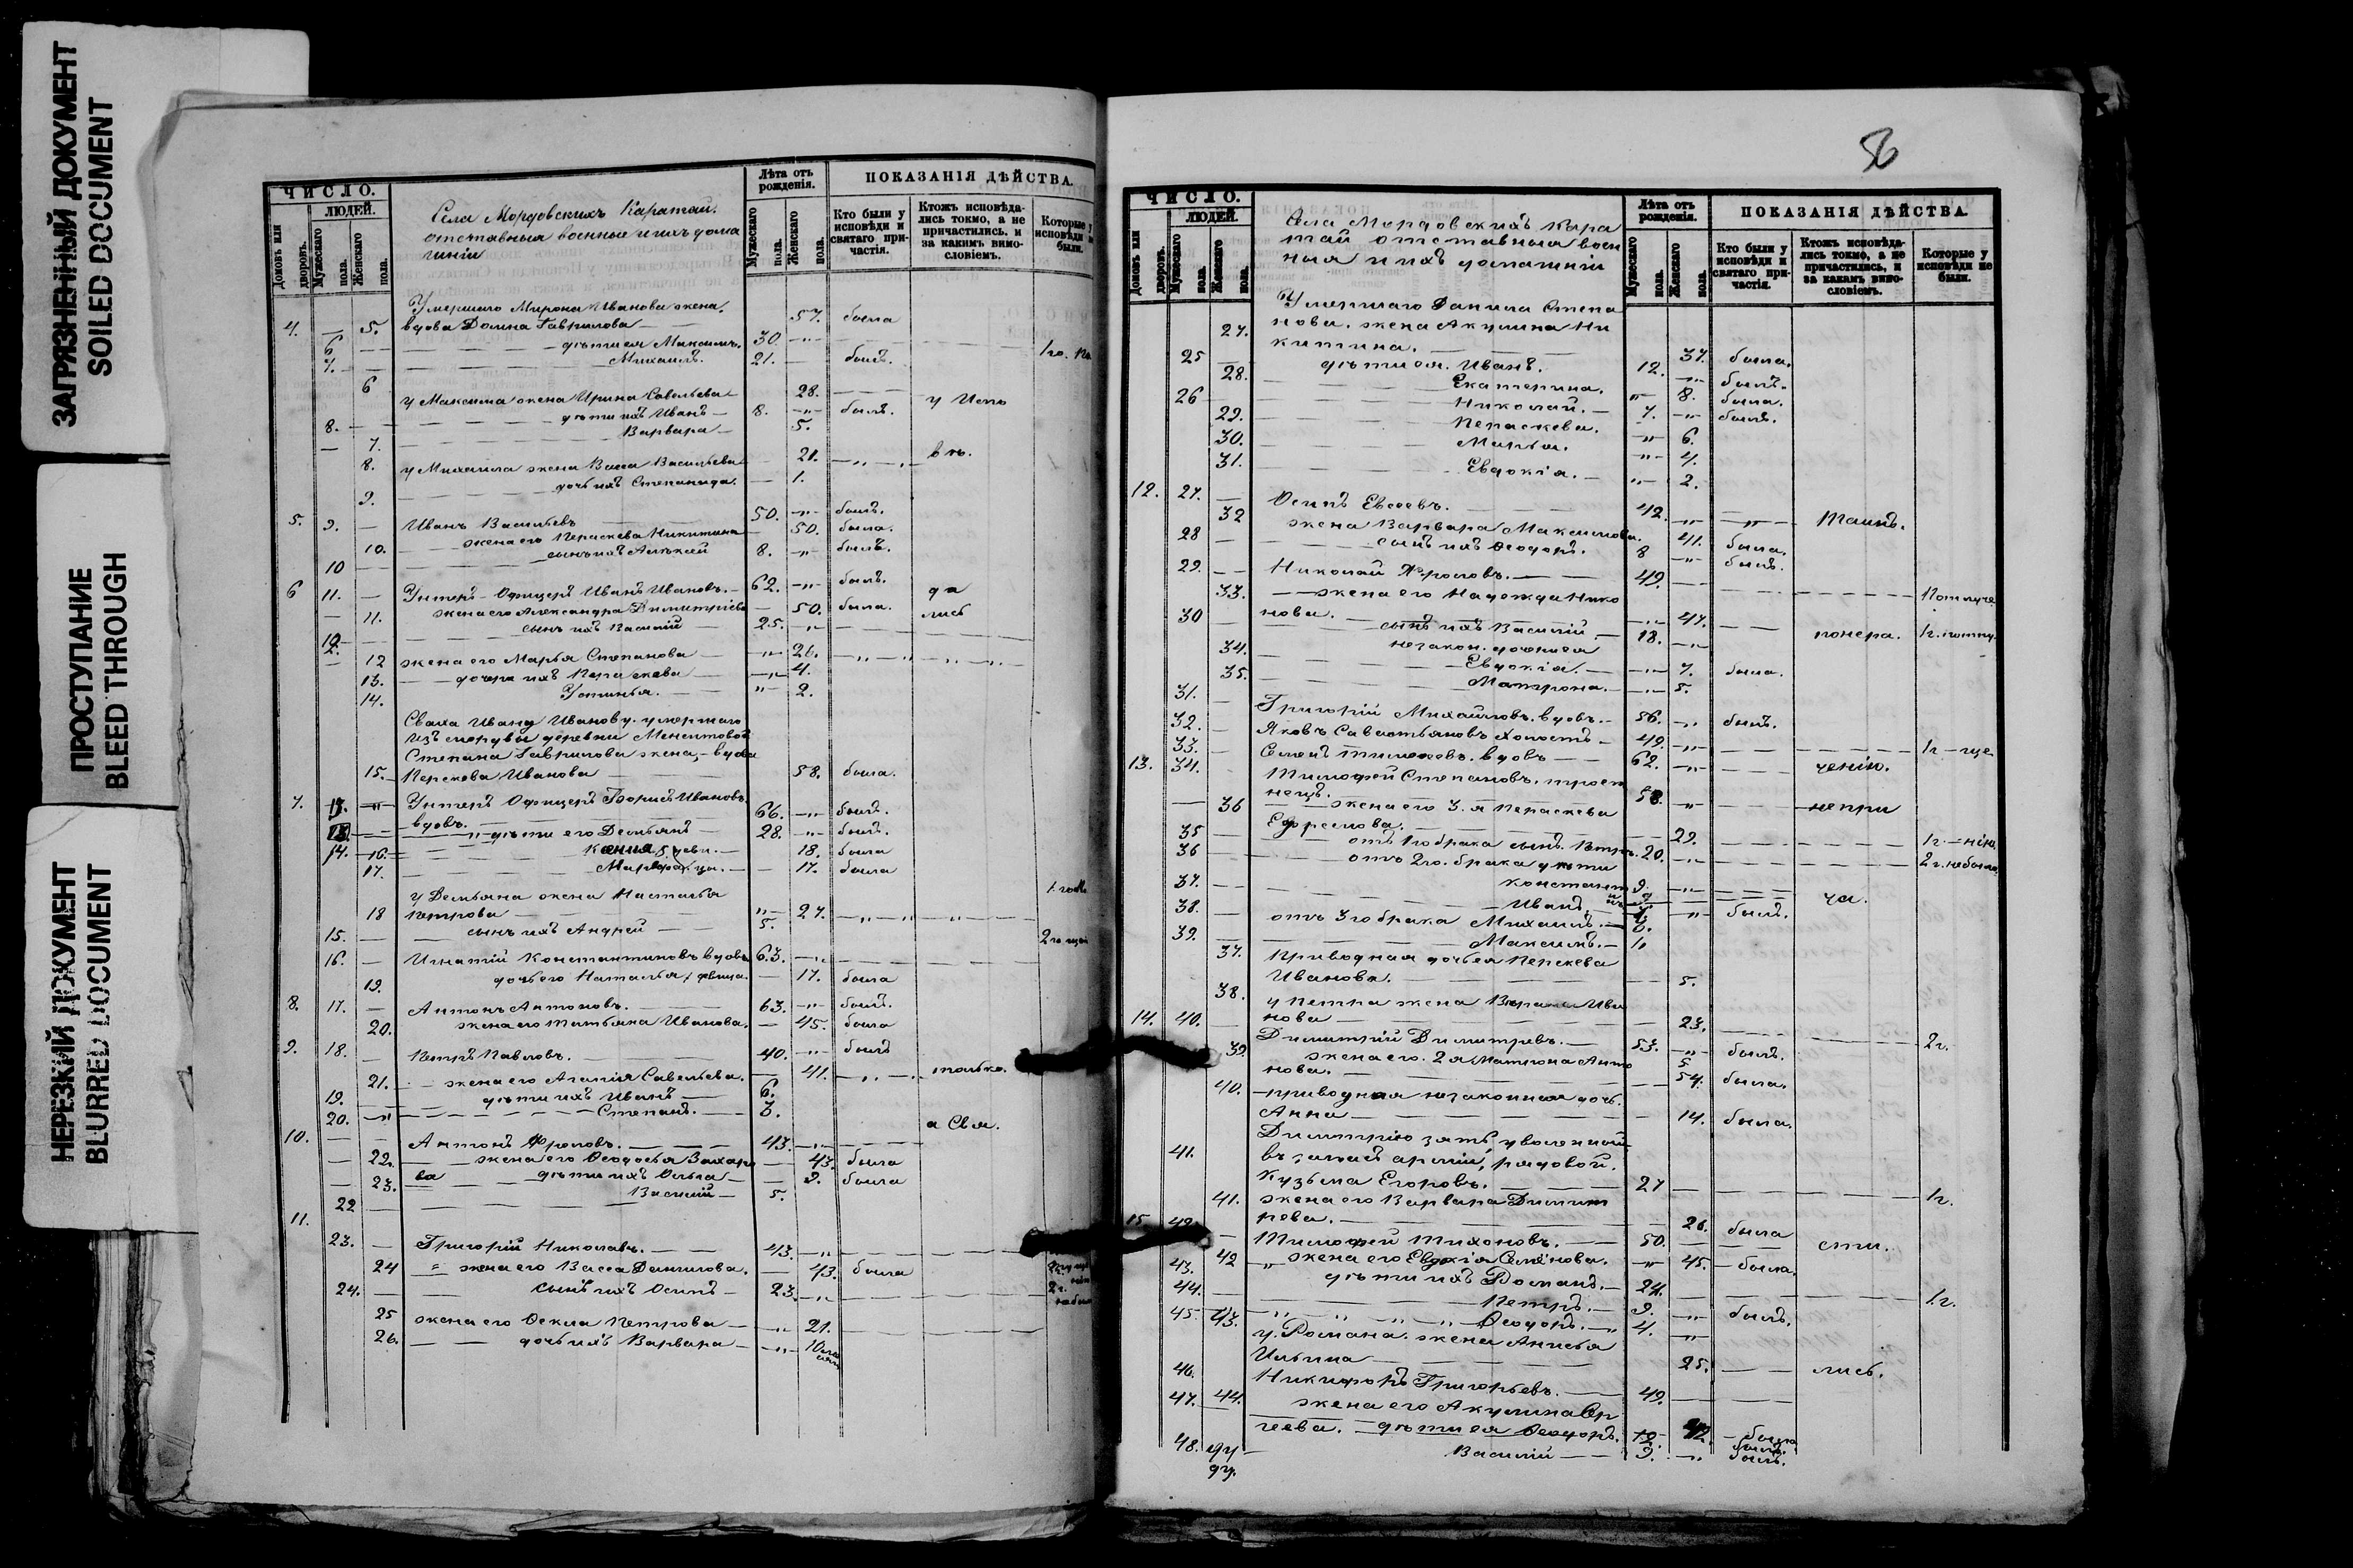 ЗАГРЯЗНЕННЫЙ ДОКУМЕНТ
SOILED DOCUMENT
ПРОСТУПАНИЕ
BLEED THROUGH
НЕРЕЗКИЙ ДОКУМЕНТ
BLURRED DOCUMENT
ЧИСЛО.
ЛЮДЕЙ.
Домовъ или дворовъ.
Мужескаго пола.
Женскаго пола.
Села Мордовскихъ Каратай.
отставныя военные и ихъ дома
шніи
Лѣта отъ рожденія.
Мужескаго пола.
Женскаго пола.
ПОКАЗАНІЯ ДѢЙСТВА.
Кто были у исповѣди и святаго причастія.
Ктожъ исповѣдались токмо, а не причастились, и за какимъ винословіемъ.
Которые у исповѣди не были.
Умершаго Мирона Иванова жена,
4. — 5. вдова Домна Гаврилова — 57. была
6. — дѣти ея Максимъ. 30 —„—
7. — Михаилъ. 21. — былъ. 1 го. по
6 у Максима жена Ирина Савельева 28. — у Испо
8. — дѣти ихъ Иванъ — 8. —„— былъ.
— 7. Варвара — 5.
8. у Михаила жена Васса Васильева — 21. —„— вѣ.
9. дочь ихъ Степанида. — 1.
5. 9. — Иванъ Васильевъ 50. —„— былъ.
10. жена его Параскева Никитина 50. была.
10 — сынъ ихъ Алексѣй 8. —„— былъ.
6 11. — Унтеръ-Офицеръ Иванъ Ивановъ. — 62. —„— былъ. да
— 11. жена его Александра Димитріева — 50. была. лись
12. сынъ ихъ Василій — 25. —„—
— 12 жена его Марья Степанова — —„— 26. —„—„—„—
13. — дочери ихъ Параскева — —„— 4.
14. Устинья. — „— 2.
Сваха Ивану Иванову. умершаго
изъ мордвы деревни
Степана Гаврилова жена, — вдова
15. Параскева Иванова 58. была.
7. 13. —„— Унтеръ Офицеръ Борисъ Ивановъ.
вдовъ. 66. —„— былъ.
— дѣти его Демьянъ — 28. —„— былъ.
14. 16. Ксенія, — 18. была
17. — 17. была
у Демьяна жена Наталья
18 Петрова „— 27. —„—„—
15. — сынъ ихъ Андрей — 5.
16. — Игнатій Константиновъ вдовъ 63. —„—
19. дочь его Наталья, дѣвица. — 17. была
8. 17. — Антонъ Антоновъ. 63. —„— былъ.
20. жена его Татьяна Иванова. — 45. была
9. 18. — Петръ Павловъ. 40. —„— былъ
21. — жена его Агапія Савельева. — 41. —„— только.
19. дѣти ихъ Иванъ — 6.
20. —„— Степанъ. — 3.
а Свя.
10. — Антонъ Фроловъ. — 43. —„—
— 22. жена его Ѳеодосья Захаро — 43. была
— 23. ва дѣти ихъ Ольга — 9. была
22 Василій — 5.
11.
23. — Григорій Николаевъ. — 43. —„—
24 „ жена его Васса Данилова. — 43. была
24. — сынъ ихъ Осипъ — 23. —„—
25 жена его Ѳекла Петрова — —„— 21.
26. — дочь ихъ Варвара — —„— 10
56
ЧИСЛО.
ЛЮДЕЙ.
Домовъ или дворовъ.
Мужескаго пола.
Женскаго пола.
Села Мордовскихъ Кара
тай отставныя воен
ныя и ихъ домашніи
Лѣта отъ рожденія.
Мужескаго пола.
Женскаго пола.
ПОКАЗАНІЯ ДѢЙСТВА.
Кто были у исповѣди и святаго причастія.
Ктожъ исповѣдались токмо, а не причастились, и за какимъ винословіемъ.
Которые у исповѣди не были.
Умершаго Данила Степа
27. нова. жена Акулина Ни
китина. 37. была.
25 — дѣти ея. Иванъ. 12. —„— былъ.
28. Екатерина. „— 8. была.
26 Николай. — 7. —„— былъ.
29. Параскева. —„— 6.
30. Марья. „— 4.
31. Евдокія. — „— 2.
12. 27. — Осипъ Евсеевъ. 42. —„— —„— Таинъ.
32 жена Варвара Максимова. 41. была.
28 — сынъ ихъ Ѳеодоръ. 8 —„— былъ.
29. — Николай Фроловъ. — 49. —
33. — жена его Надежда Нико
нова. —„— 47.
30 — сынъ ихъ Василій — 18. —„— 1 г.
34. незакон. дочери ея
Евдокія. — —„— 7. была.
35. Матрона. — —„— 5.
31. — Григорій Михайловъ. вдовъ. — 56. —„— былъ.
32. — Яковъ Савастьяновъ холостъ — 49. —„— 1 г.
33. — Семенъ Тимоѳеевъ. вдовъ — 62. —„— ченію.
13. 34. Тимоѳей Степановъ. троеж
нецъ. 58. —„— непри
— 36 — жена его 3-я Параскева
Ефремова. — 29.
35 — отъ 1 го брака сынъ. Петръ. 20. —„— 1 г. — нію
36 — отъ 2 го. брака дѣти 2 г. небыла
Константинъ 9. —„— ча.
37. — Иванъ „— былъ.
38. — отъ 3 го брака Михаилъ. —
39. Максимъ. — 1
37. Приводная дочь ея Параскева
Иванова. 5.
38. у Петра жена Варвара Ива
нова — 23. 2 г.
14. 40. — Димитрій Димитревъ. — 53. —„— былъ.
39. жена его. 2 я Матрона Анто
нова. 54. была.
40. — приводная незаконная дочь.
Анна — 14. была.
Димитрію зять, уволенной
41. въ запасъ арміи, рядовой.
Кузьма Егоровъ. — 27 — 1 г.
41. жена его Варвара Димит
рева. — 26. была
15. 42. — Тимоѳей Тихоновъ. — 50. сти.
42 „ жена его Евдокія Семёнова. „ 45. — была.
43. дѣти ихъ Романъ. — 24. 1 г.
44. Петръ. — 9. —„— былъ.
45. 43. Ѳеодоръ. — 4. —„—
у Романа. жена Анисья
Ильина — 25. — лись.
46. Никифоръ Григорьевъ. — 49. —
47. 44. жена его Акулина Сер
геева. — дѣти ея Ѳеодоръ. — была былъ.
48. Василій — 9. —„— былъ.